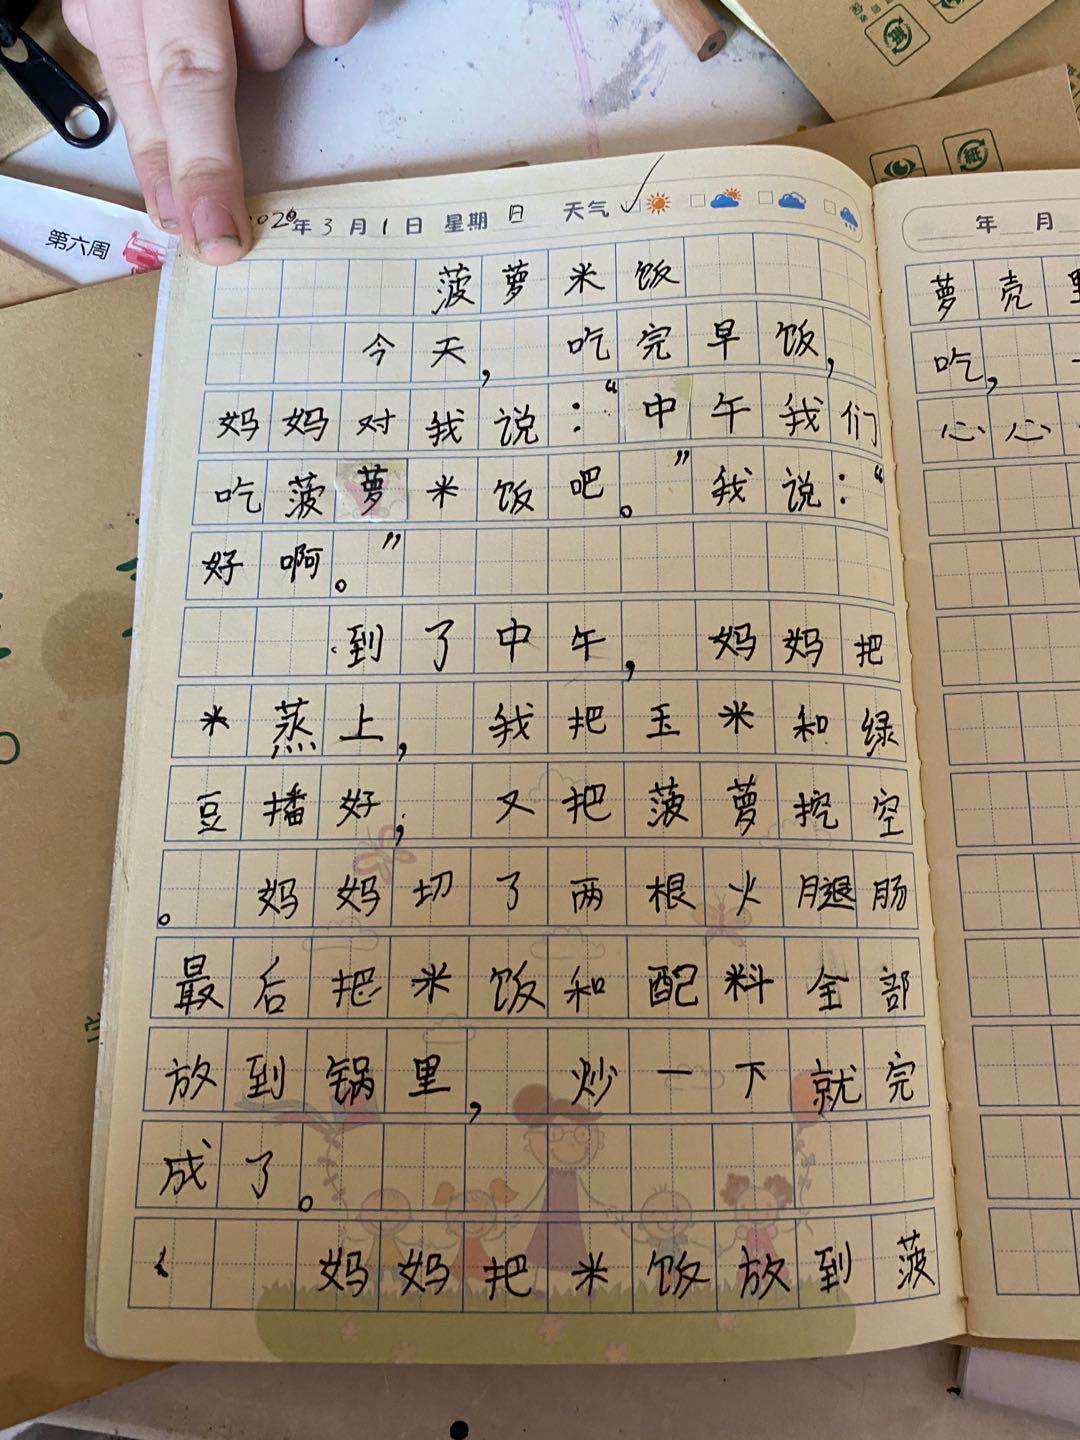 第六周
2020年3月1日 星期日 天气
菠萝米饭
今天，吃完早饭，
妈妈对我说：“中午我们
吃菠萝米饭吧。”我说：“
好啊。”
到了中午，妈妈把
米蒸上，我把玉米和绿
豆播好，又把菠萝挖空
。妈妈切了两根火腿肠
最后把米饭和配料全部
放到锅里，炒一下就完
成了。
妈妈把米饭放到菠
年 月
萝壳里
吃，
心心
紙